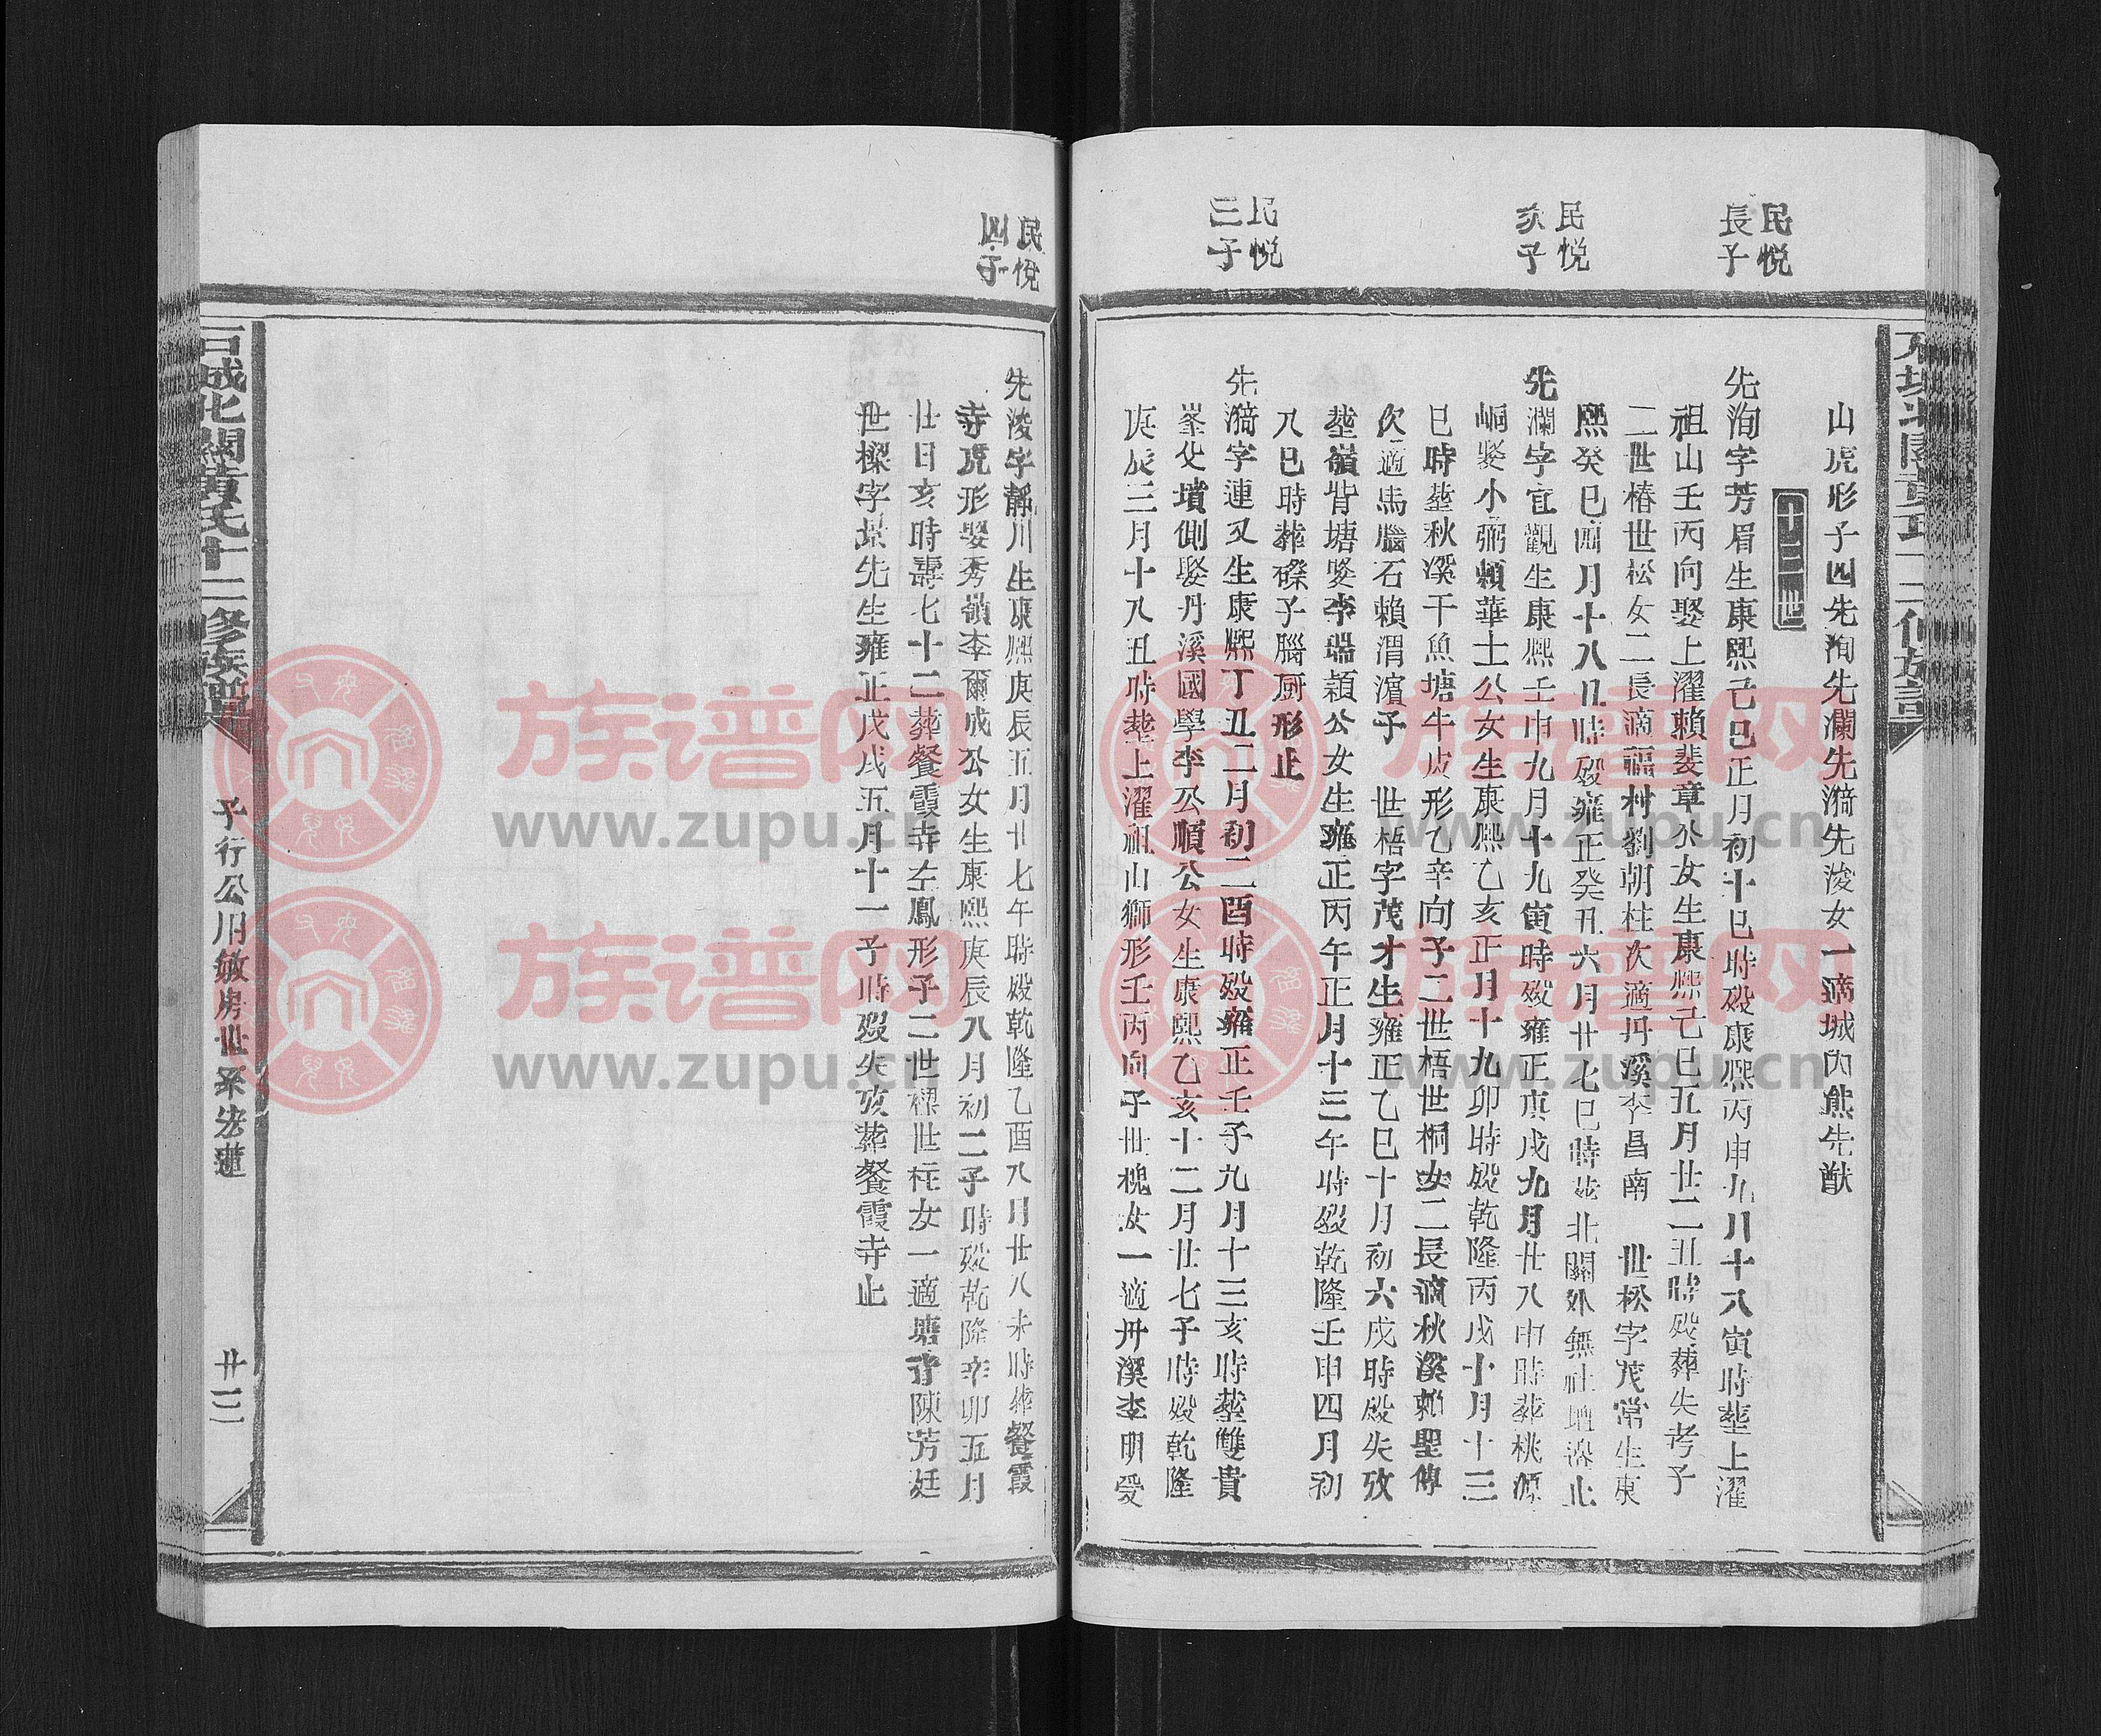 山虎形子四先洵先瀾先漪先浚女一適城內熊先猷
十三世
民悅
長子
先洵字芳眉生康熙己巳正月初十巳時歿康熙丙申九月十八寅時塟上濯
祖山壬丙向娶上濯賴斐章公女生康熙己巳五月廿二丑時歿葬失考子
二世椿世松女二長適福村劉朝柱次適丹溪李昌南 世松字茂常生康
熙癸巳四月十八丑時歿雍正癸丑六月廿七巳時葬北關外無社壇邊止
民悅
次子
先瀾字宜觀生康熙壬申九月十九寅時歿雍正庚戌九月廿八申時葬桃源
峒娶小弼賴華士公女生康熙乙亥正月十九卯時歿乾隆丙戌十月十三
巳時塟秋溪干魚塘牛皮形乙辛向子二世梧世桐女二長適秋溪賴聖傳
次適馬腦石賴渭濱子 世梧字茂才生雍正乙巳十月初六戌時歿失攷
塟嶺背塘娶李瑞穎公女生雍正丙午正月十三午時歿乾隆壬申四月初
八巳時葬磜子腦厨形止
民悅
三子
先漪字連又生康熙丁丑二月初二酉時歿雍正壬子九月十三亥時塟雙貴
峯父墳側娶丹溪國學李公順公女生康熙乙亥十二月廿七子時歿乾隆
庚辰三月十八丑時塟上濯祖山獅形壬丙向子世槐女一適丹溪李明受
民悅
四子
先浚字靜川生康熙庚辰五月廿七午時歿乾隆乙酉八月廿八未時葬餐霞
寺虎形娶秀嶺李爾成公女生康熙庚辰八月初二子時歿乾隆辛卯五月
廿日亥時壽七十二葬餐霞寺左鳳形子二世樑世柱女一適塘背陳芳廷
世樑字景先生雍正戊戌五月十一子時歿失攷葬餐霞寺止
石城北關黃氏十二修族譜
子行公用敏房世系宏蓮
廿三
族谱网
www.zupu.cn
族谱网
www.zupu.cn
族谱网
www.zupu.cn
族谱网
www.zupu.cn